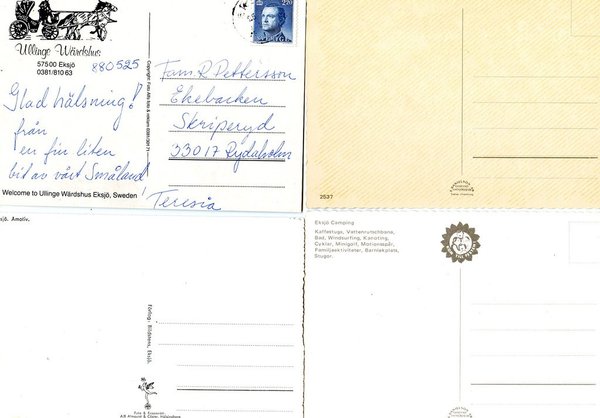 Ullinge Wärdshus
57500 Eksjö
0381/810 63
880525
Glad hälsning!
från
en fin liten
bit av vårt Småland!
Teresia
Welcome to Ullinge Wärdshus Eksjö, Sweden
220
Fam R. Pettersson
Ekebacken
Skriperyd
33017 Rydaholm
2537
sjö. Amotiv.
Förlag: Bildpress, Eksjö.
Eksjö Camping
Kaffestuga, Vattenrutschbana,
Bad, Windsurfing, Kanoting,
Cyklar, Minigolf, Motionsspår,
Familjeaktiviteter, Barnlekplats,
Stugor.